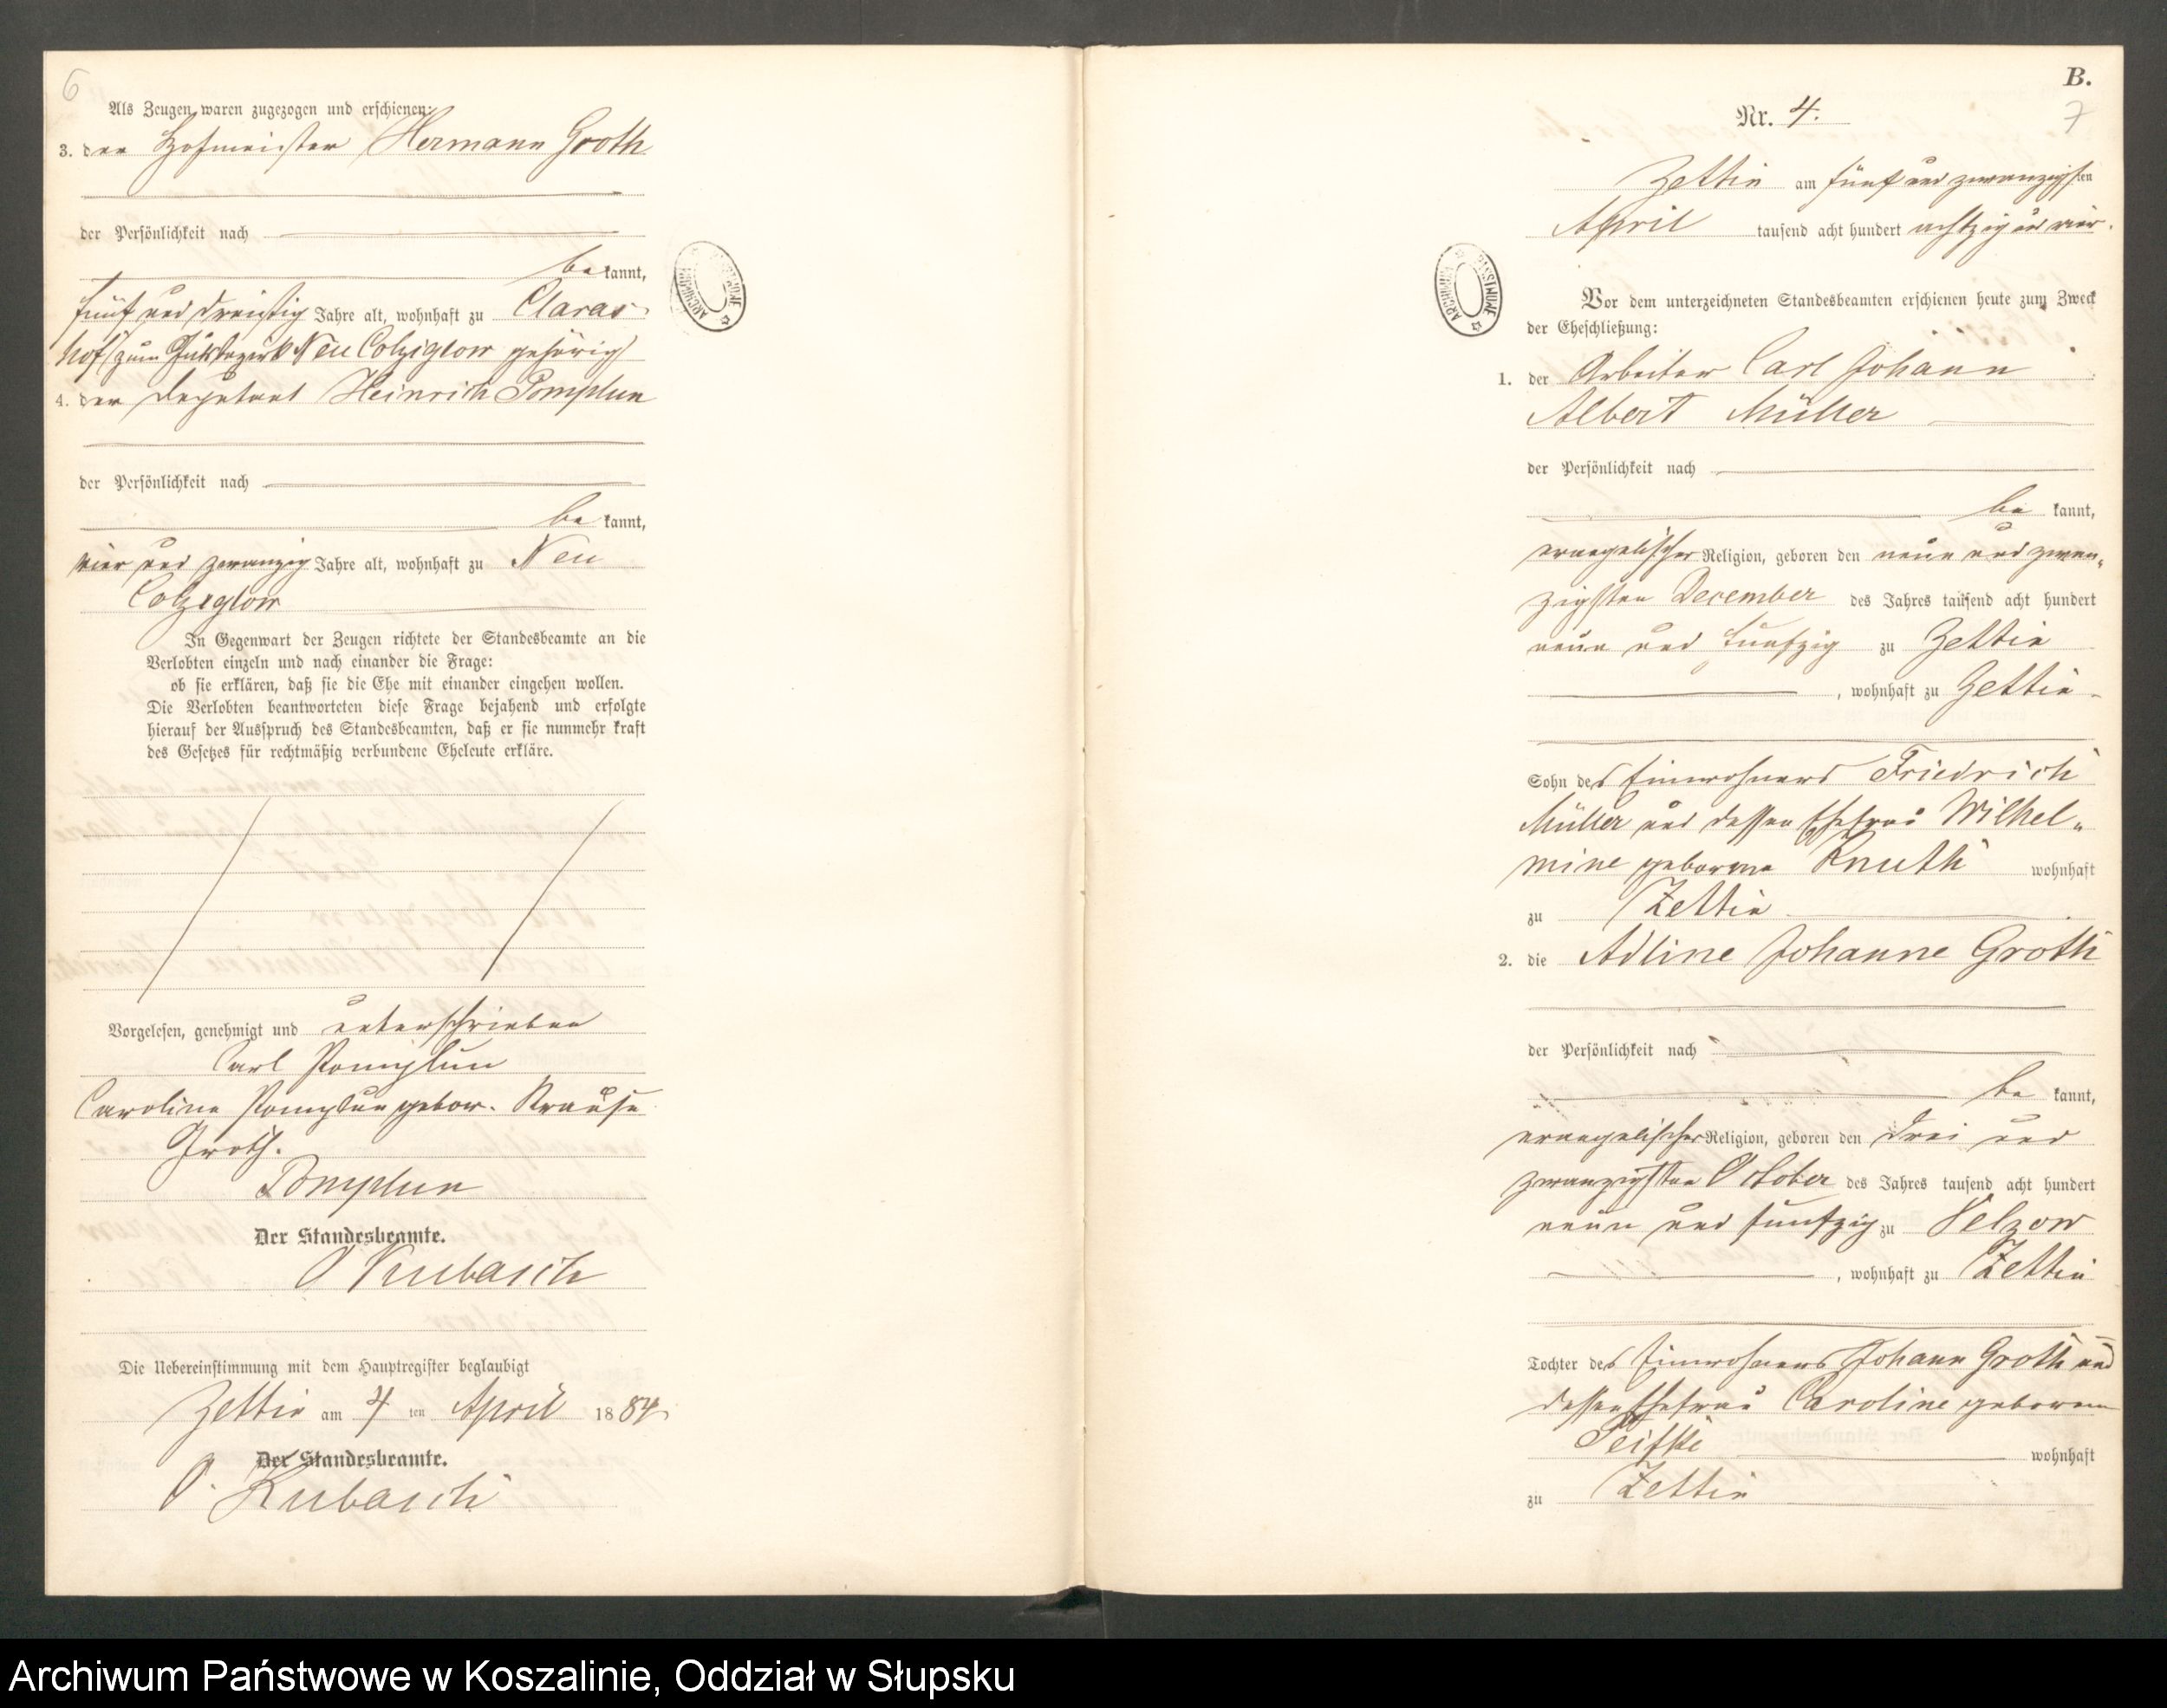 6
Als Zeugen waren zugezogen und erschienen:
3. der Hofmeister Hermann Groth
der Persönlichkeit nach
bekannt,
fünf und dreißig Jahre alt, wohnhaft zu Claras-
hof (zum Gutsbezirk Neu Colziglow gehörig)
4. der Deputant Heinrich Pomplun
der Persönlichkeit nach
bekannt,
vier und zwanzig Jahre alt, wohnhaft zu Neu
Colziglow
In Gegenwart der Zeugen richtete der Standesbeamte an die
Verlobten einzeln und nach einander die Frage:
ob sie erklären, daß sie die Ehe mit einander eingehen wollen.
Die Verlobten beantworteten diese Frage bejahend und erfolgte
hierauf der Ausspruch des Standesbeamten, daß er sie nunmehr kraft
des Gesetzes für rechtmäßig verbundene Eheleute erkläre.
Vorgelesen, genehmigt und unterschrieben
Carl Pomplun
Caroline Pomplun gebor. Krause
Groth.
Pomplun
Der Standesbeamte.
O Kubasch
Die Uebereinstimmung mit dem Hauptregister beglaubigt
Zettin am 4 ten April 1884
Der Standesbeamte.
O. Kubasch
B.
Nr. 4.
7
Zettin am fünf und zwanzigsten
April tausend acht hundert achtzig und vier.
Vor dem unterzeichneten Standesbeamten erschienen heute zum Zweck
der Eheschließung:
1. der Arbeiter Carl Johann
Albert Müller
der Persönlichkeit nach
bekannt,
evangelischer Religion, geboren den neun und zwan-
zigsten December des Jahres tausend acht hundert
neun und fünfzig zu Zettin
, wohnhaft zu Zettin
Sohn des Einwohners Friedrich
Müller und dessen Ehefrau Wilhel-
mine geborene Knuth wohnhaft
zu Zettin
2. die Adline Johanne Groth
der Persönlichkeit nach
bekannt,
evangelischer Religion, geboren den drei und
zwanzigsten October des Jahres tausend acht hundert
neun und fünfzig zu Velzow
, wohnhaft zu Zettin
Tochter des Einwohners Johann Groth und
dessen Ehefrau Caroline geborene
wohnhaft
zu Zettin
Archiwum Państwowe w Koszalinie, Oddział w Słupsku